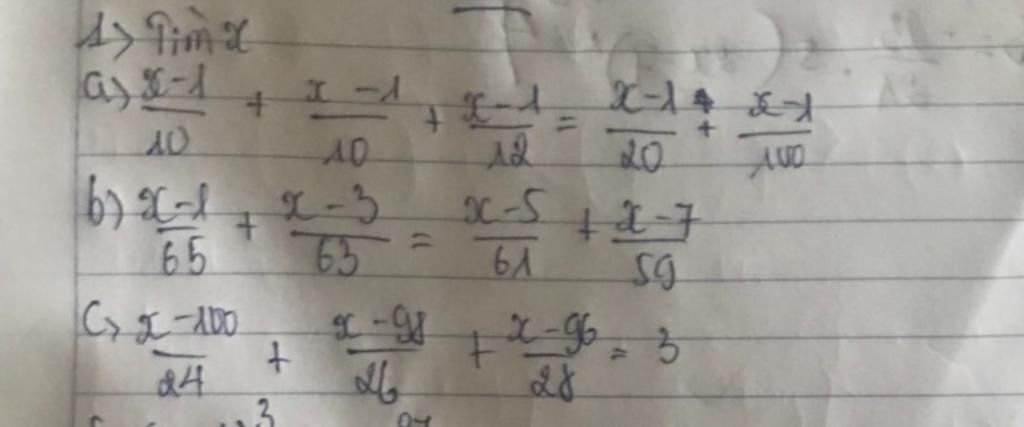 1> Tìm x
a> x-1/10 + x-1/10 + x-1/12 = x-1/20 + x-1/100
b) x-1/65 + x-3/63 = x-5/61 + x-7/59
c> x-100/24 + x-98/26 + x-96/28 = 3